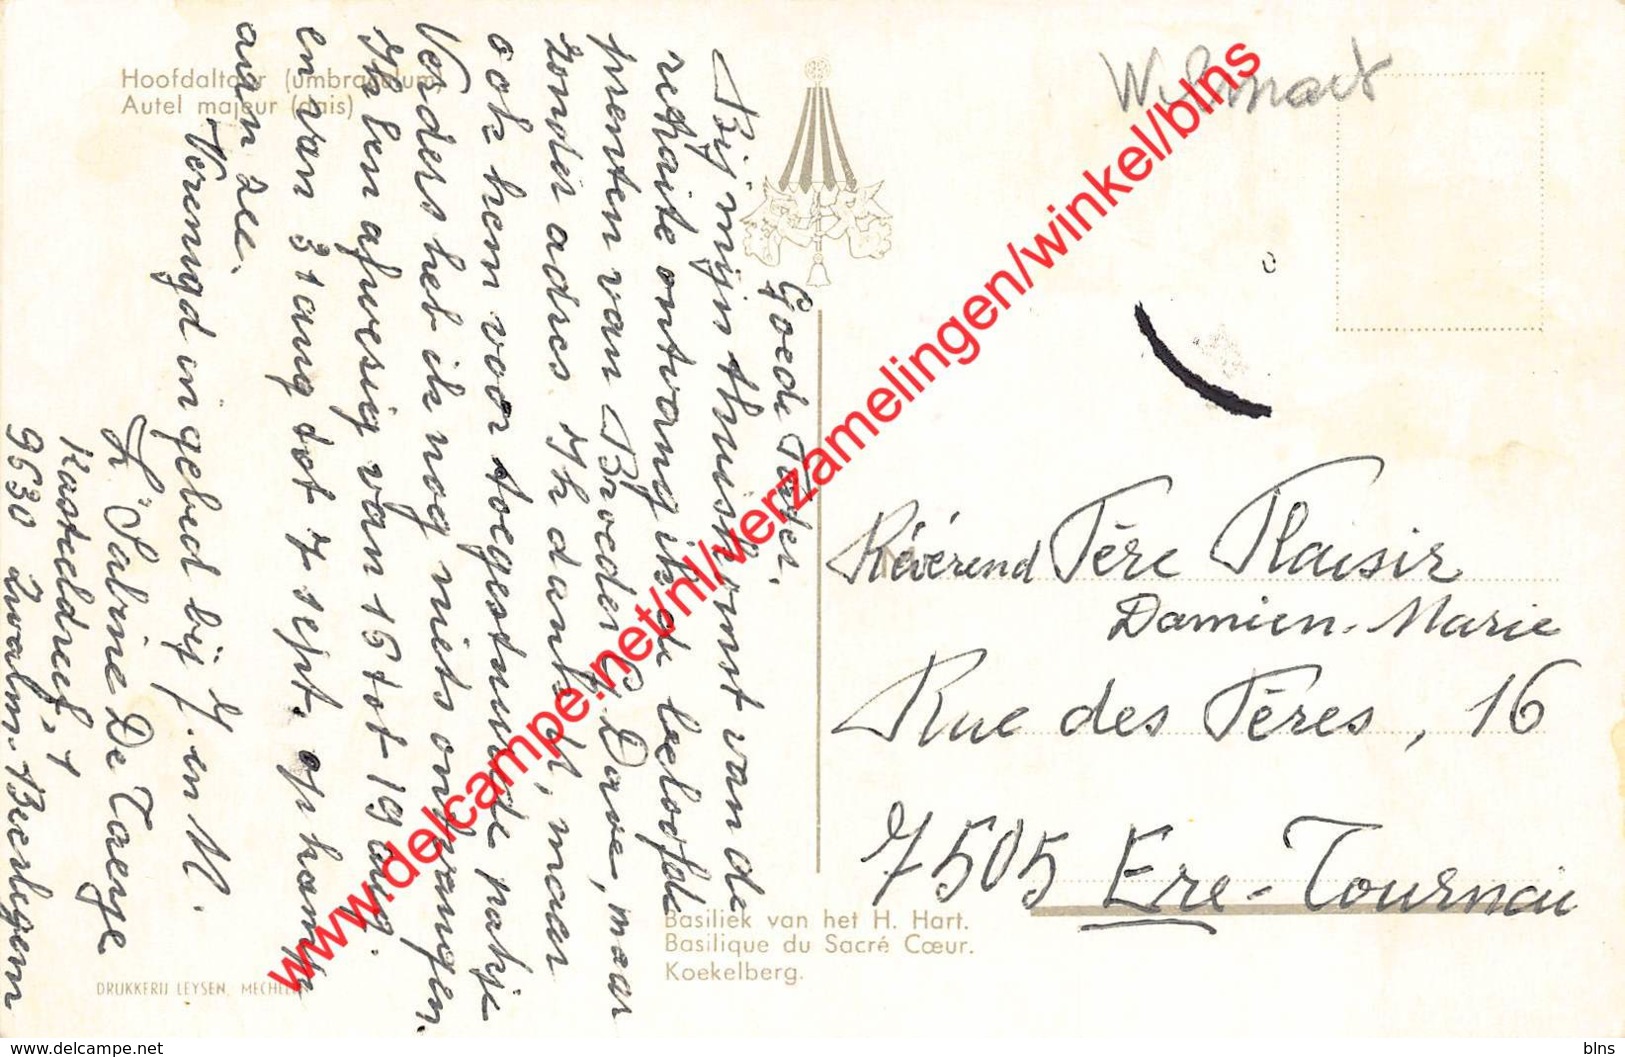 Hoofdaltaar (umbraculum)
Autel majeur (dais)
Wilmart
Goede Pater,
Bij mijn thuiskomst van de
retraite ontvang ik de beloofde
prenten van Broeder G. Dove, maar
zonder adres. Ik dank U, maar
ook hem voor toegestuurde pakje
Verders heb ik nog niets ontvangen.
Ik ben afwezig van 15 tot 19 aug.
en van 31 aug tot 7 sept. op kamp
aan zee.
Verenigd in gebed bij J. en M.
Zr Sabine De Taeye
Kasteeldreef, 1
9630 Zwalm-Beerlegem
Révérend Père Plaisir
Damien-Marie
Rue des Pères, 16
7505 Ere-Tournai
Basiliek van het H. Hart.
Basilique du Sacré Cœur.
Koekelberg.
DRUKKERIJ LEYSEN, MECHELEN
www.delcampe.net/nl/verzamelingen/winkel/blns
www.delcampe.net
blns